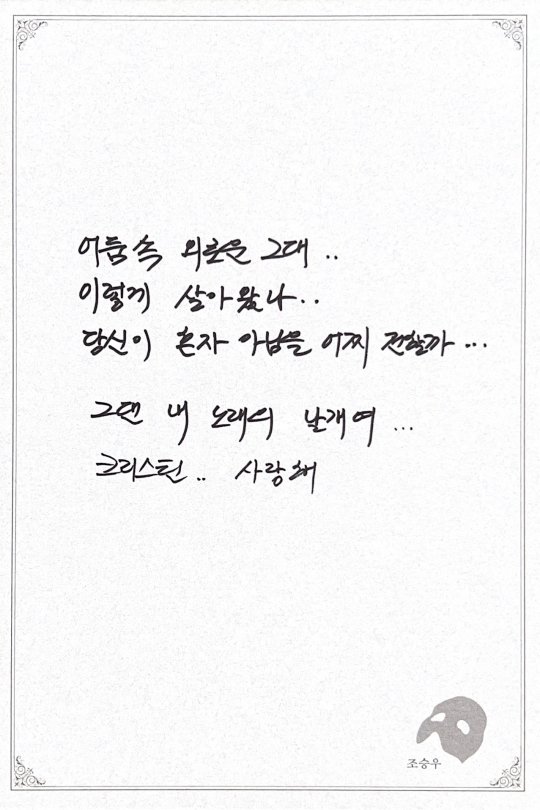 어둠 속 외로운 그대 ..
이렇게 살아왔나..
당신이 혼자 아님을 어찌 전할까 ...
그댄 내 노래의 날개여 ...
크리스틴.. 사랑해
조승우